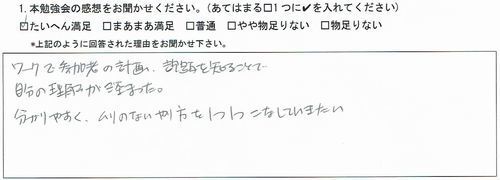 1. 本勉強会の感想をお聞かせください。（あてはまる□１つに✔を入れてください）
☑たいへん満足 □まあまあ満足 □普通 □やや物足りない □物足りない
*上記のように回答された理由をお聞かせ下さい。
ワークで参加者の計画、課題を知ることで
自分の理解が深まった。
分かりやすく、ムリのないやり方を1つ1つこなしていきたい